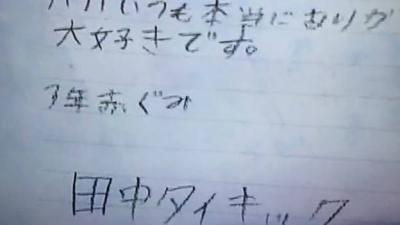 いつも本当にありが
大好きです。
3年赤ぐみ
田中タイキック